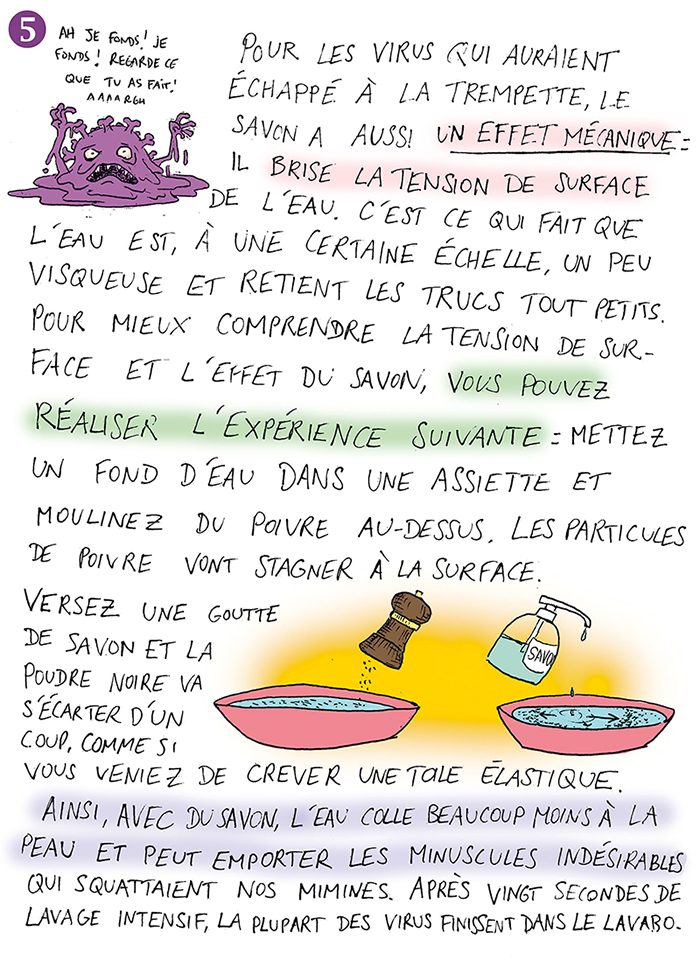 5
AH JE FONDS! JE
FONDS! REGARDE CE
QUE TU AS FAIT!
AAAARGH
POUR LES VIRUS QUI AURAIENT
ÉCHAPPÉ À LA TREMPETTE, LE
SAVON A AUSSI UN EFFET MÉCANIQUE :
IL BRISE LA TENSION DE SURFACE
DE L'EAU. C'EST CE QUI FAIT QUE
L'EAU EST, À UNE CERTAINE ÉCHELLE, UN PEU
VISQUEUSE ET RETIENT LES TRUCS TOUT PETITS.
POUR MIEUX COMPRENDRE LA TENSION DE SUR-
FACE ET L'EFFET DU SAVON, VOUS POUVEZ
RÉALISER L'EXPÉRIENCE SUIVANTE : METTEZ
UN FOND D'EAU DANS UNE ASSIETTE ET
MOULINEZ DU POIVRE AU-DESSUS. LES PARTICULES
DE POIVRE VONT STAGNER À LA SURFACE.
VERSEZ UNE GOUTTE
DE SAVON ET LA
POUDRE NOIRE VA
S'ÉCARTER D'UN
COUP, COMME SI
VOUS VENIEZ DE CREVER UNE TOILE ÉLASTIQUE.
SAVON
AINSI, AVEC DU SAVON, L'EAU COLLE BEAUCOUP MOINS À LA
PEAU ET PEUT EMPORTER LES MINUSCULES INDÉSIRABLES
QUI SQUATTAIENT NOS MIMINES. APRÈS VINGT SECONDES DE
LAVAGE INTENSIF, LA PLUPART DES VIRUS FINISSENT DANS LE LAVABO.